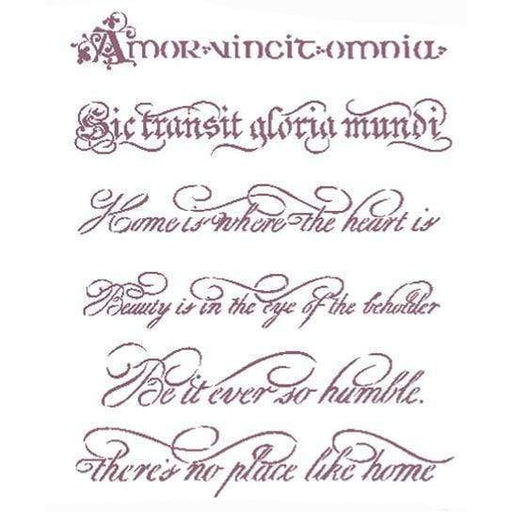 Amor·vincit·omnia·
Sic transit gloria mundi
Home is where the heart is
Beauty is in the eye of the beholder
Be it ever so humble.
there's no place like home